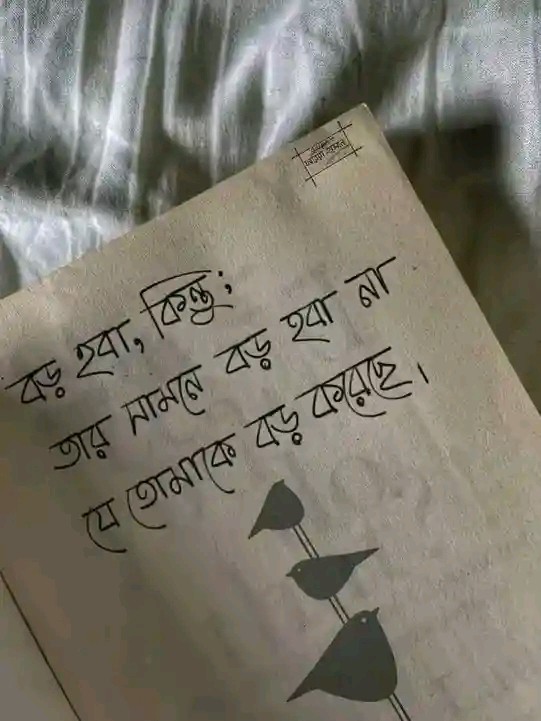 বড় হবা, কিন্তু;
তার সামনে বড় হবা না
যে তোমাকে বড় করেছে।